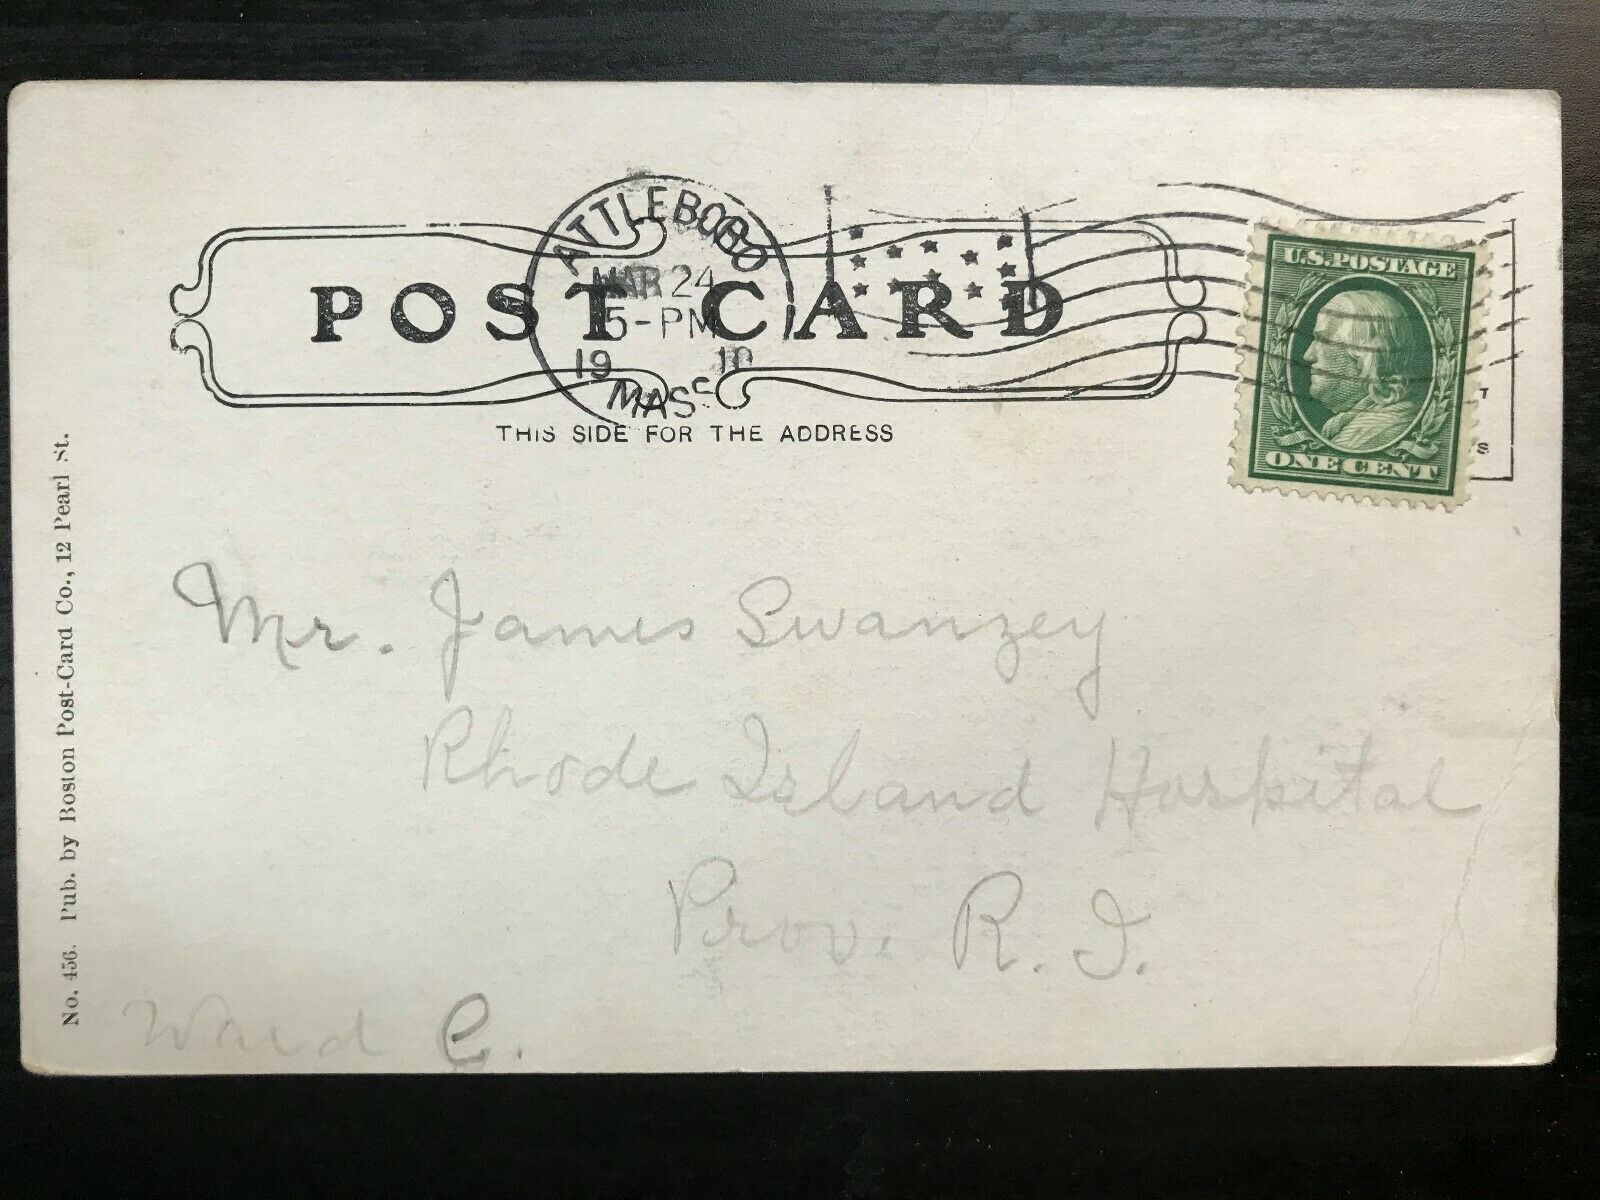 ATTLEBORO
MAR 24
5-PM
19 10
MASS
POST CARD
THIS SIDE FOR THE ADDRESS
U.S. POSTAGE
ONE CENT
T
S
Mr. James Swanzey
Rhode Island Hospital
Prov. R. I.
Ward C.
No. 456. Pub. by Boston Post-Card Co., 12 Pearl St.